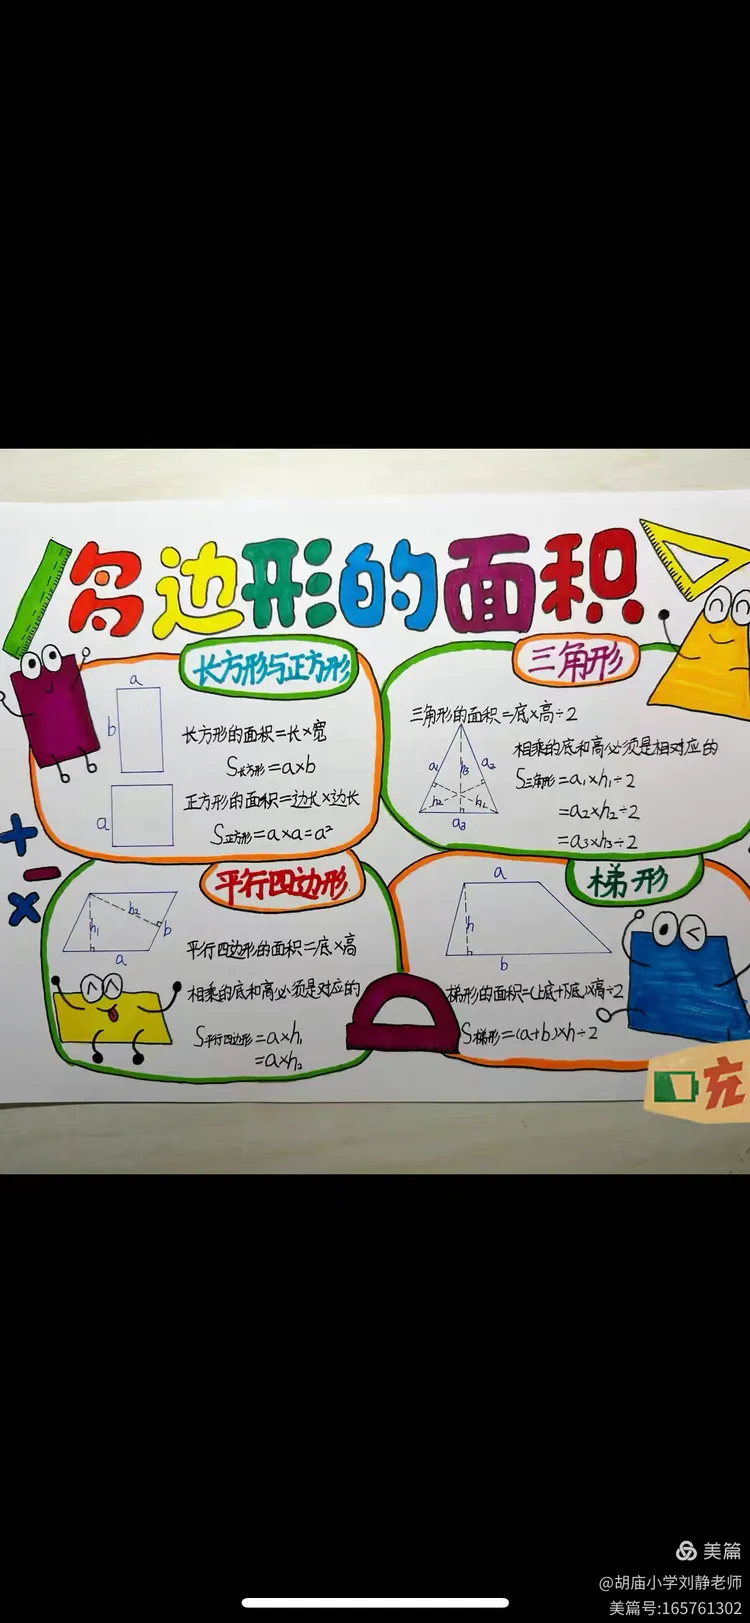 多边形的面积
长方形与正方形
a
b
长方形的面积=长×宽
S长方形=a×b
a
正方形的面积=边长×边长
S正方形=a×a=a²
三角形
三角形的面积=底×高÷2
相乘的底和高必须是相对应的
a₁
h₃
a₂
h₂
h₁
a₃
S三角形=a₁×h₁÷2
=a₂×h₂÷2
=a₃×h₃÷2
平行四边形
h₁
h₂
b
a
平行四边形的面积=底×高
相乘的底和高必须是对应的
S平行四边形=a×h₁
=a×h₂
梯形
a
h
b
梯形的面积=(上底+下底)×高÷2
S梯形=(a+b)×h÷2
充
美篇
@胡庙小学刘静老师
美篇号:165761302